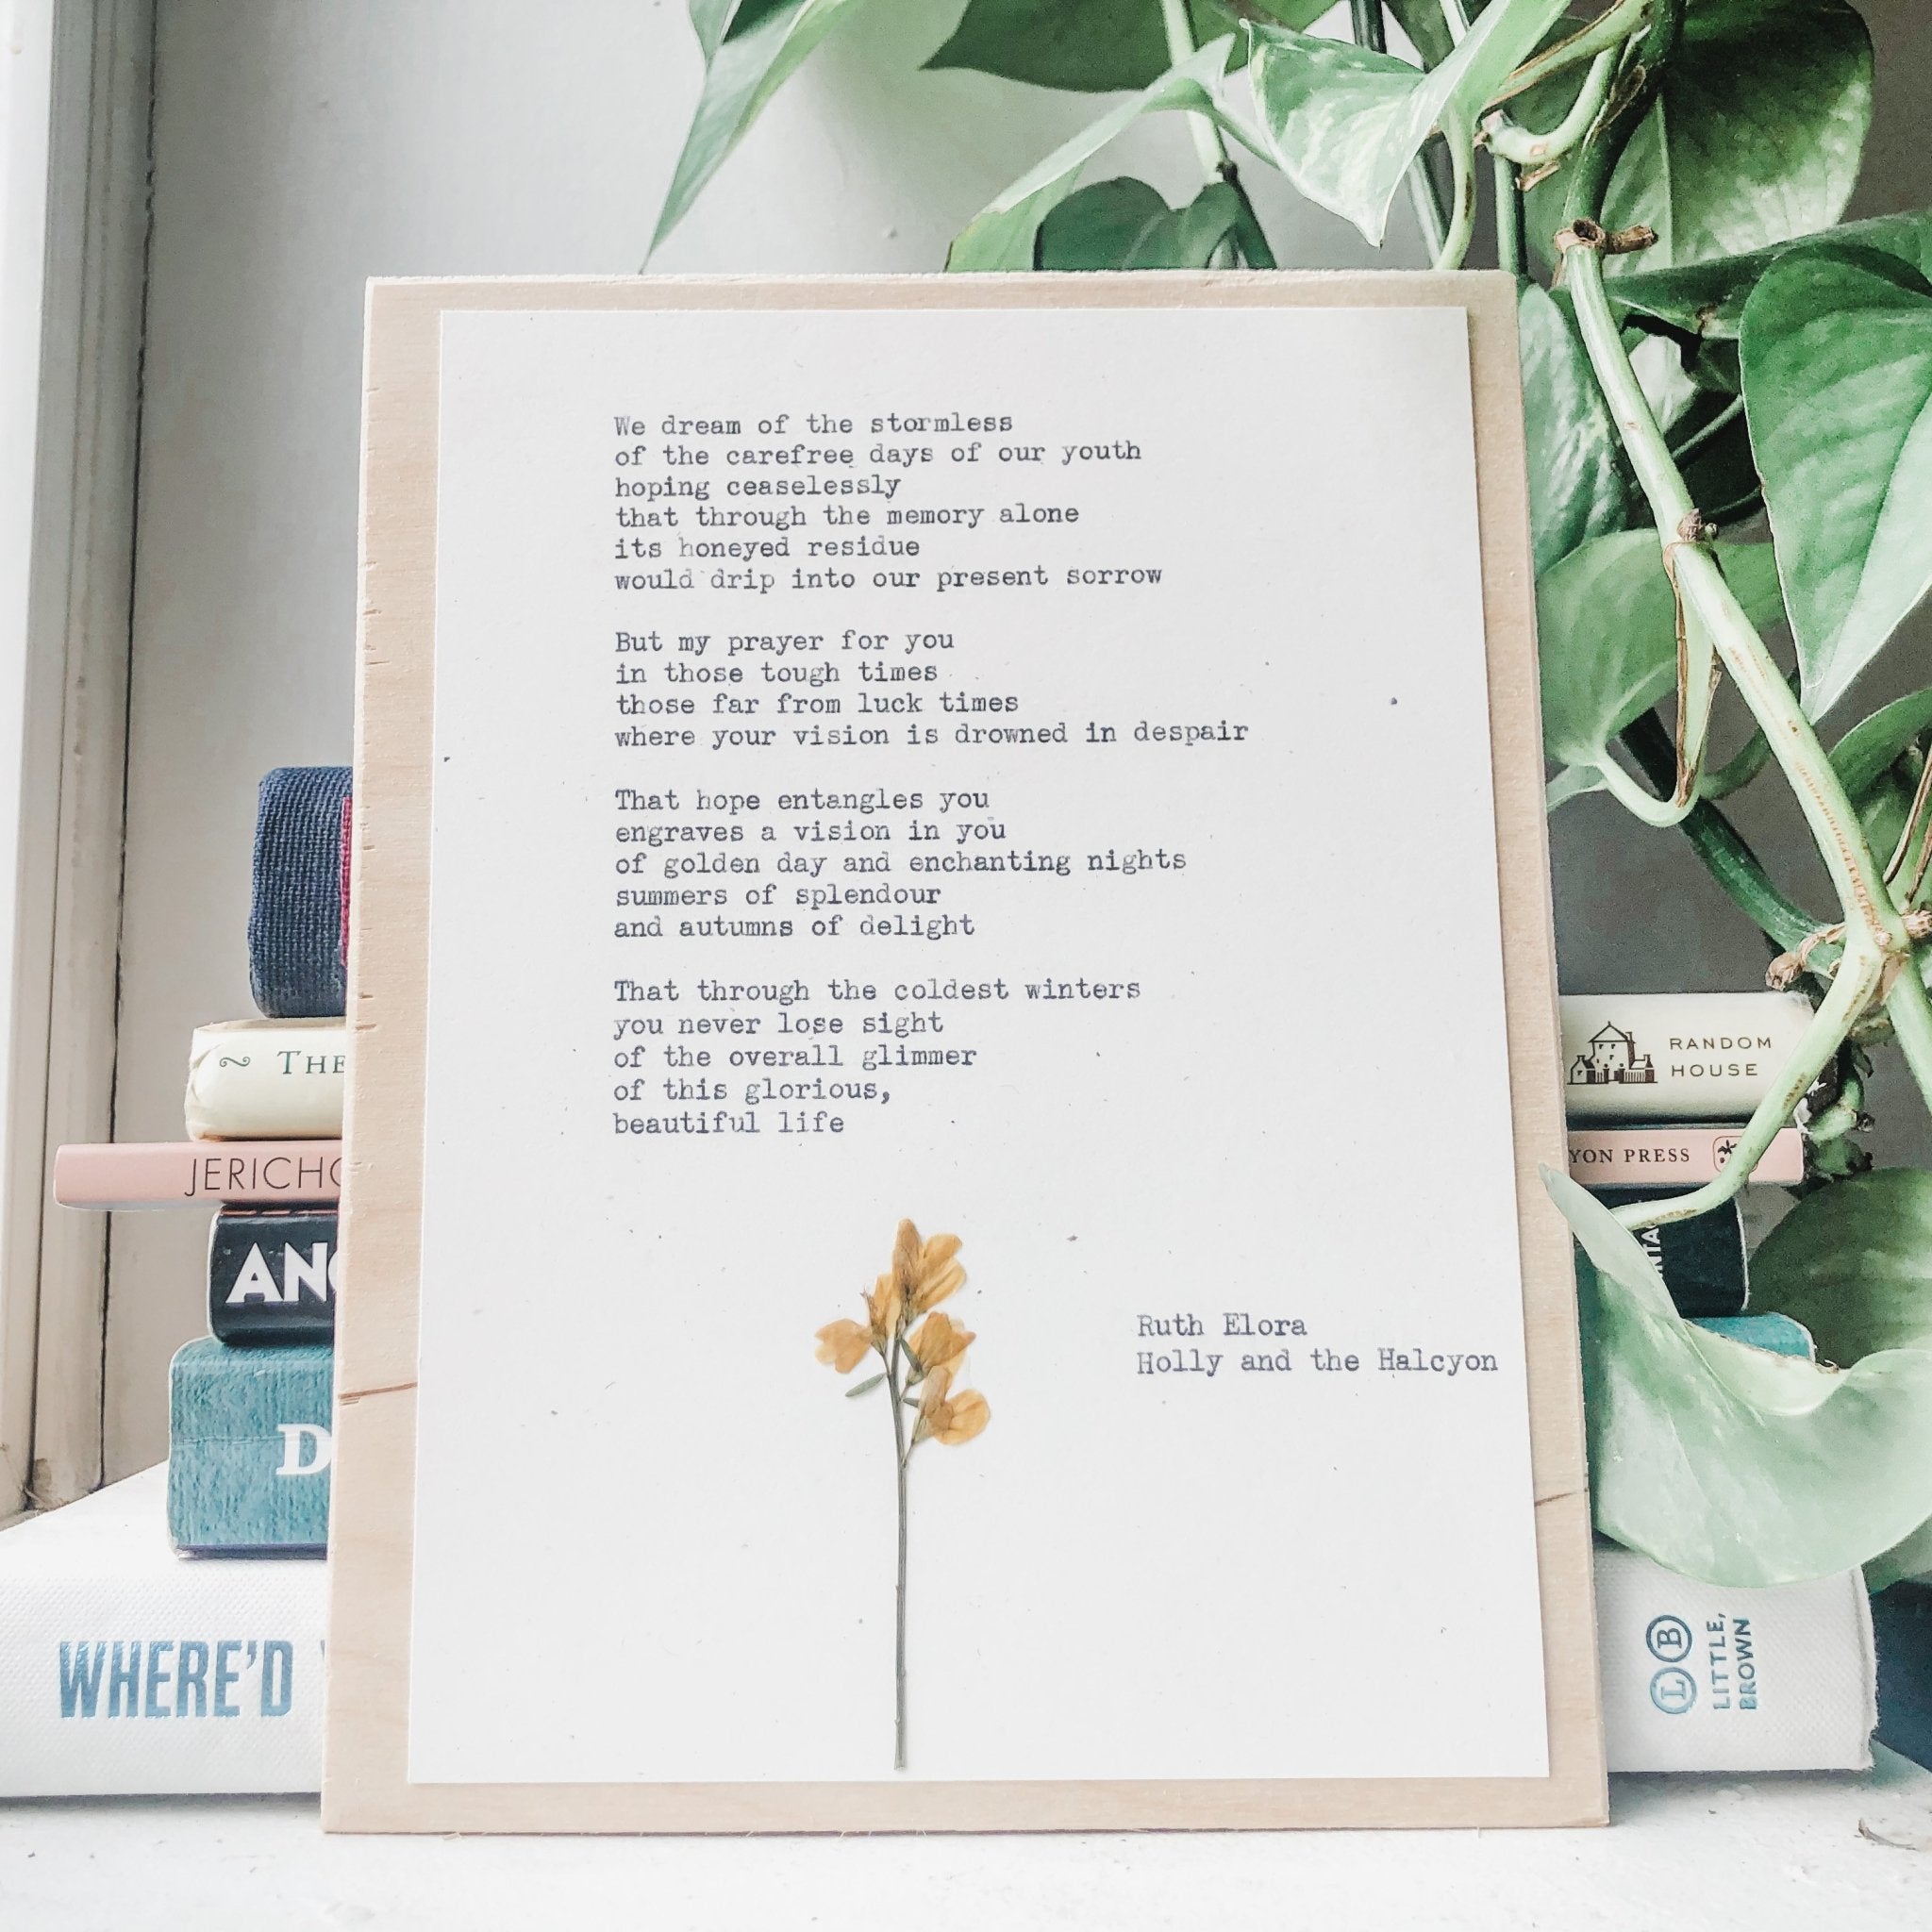 We dream of the stormless
of the carefree days of our youth
hoping ceaselessly
that through the memory alone
its honeyed residue
would drip into our present sorrow
But my prayer for you
in those tough times
those far from luck times
where your vision is drowned in despair
That hope entangles you
engraves a vision in you
of golden day and enchanting nights
summers of splendour
and autumns of delight
That through the coldest winters
you never lose sight
of the overall glimmer
of this glorious,
beautiful life
Ruth Elora
Holly and the Halcyon
THE
RANDOM
HOUSE
JERICHO
YON PRESS
AN
D
WHERE'D
LB
LITTLE,
BROWN